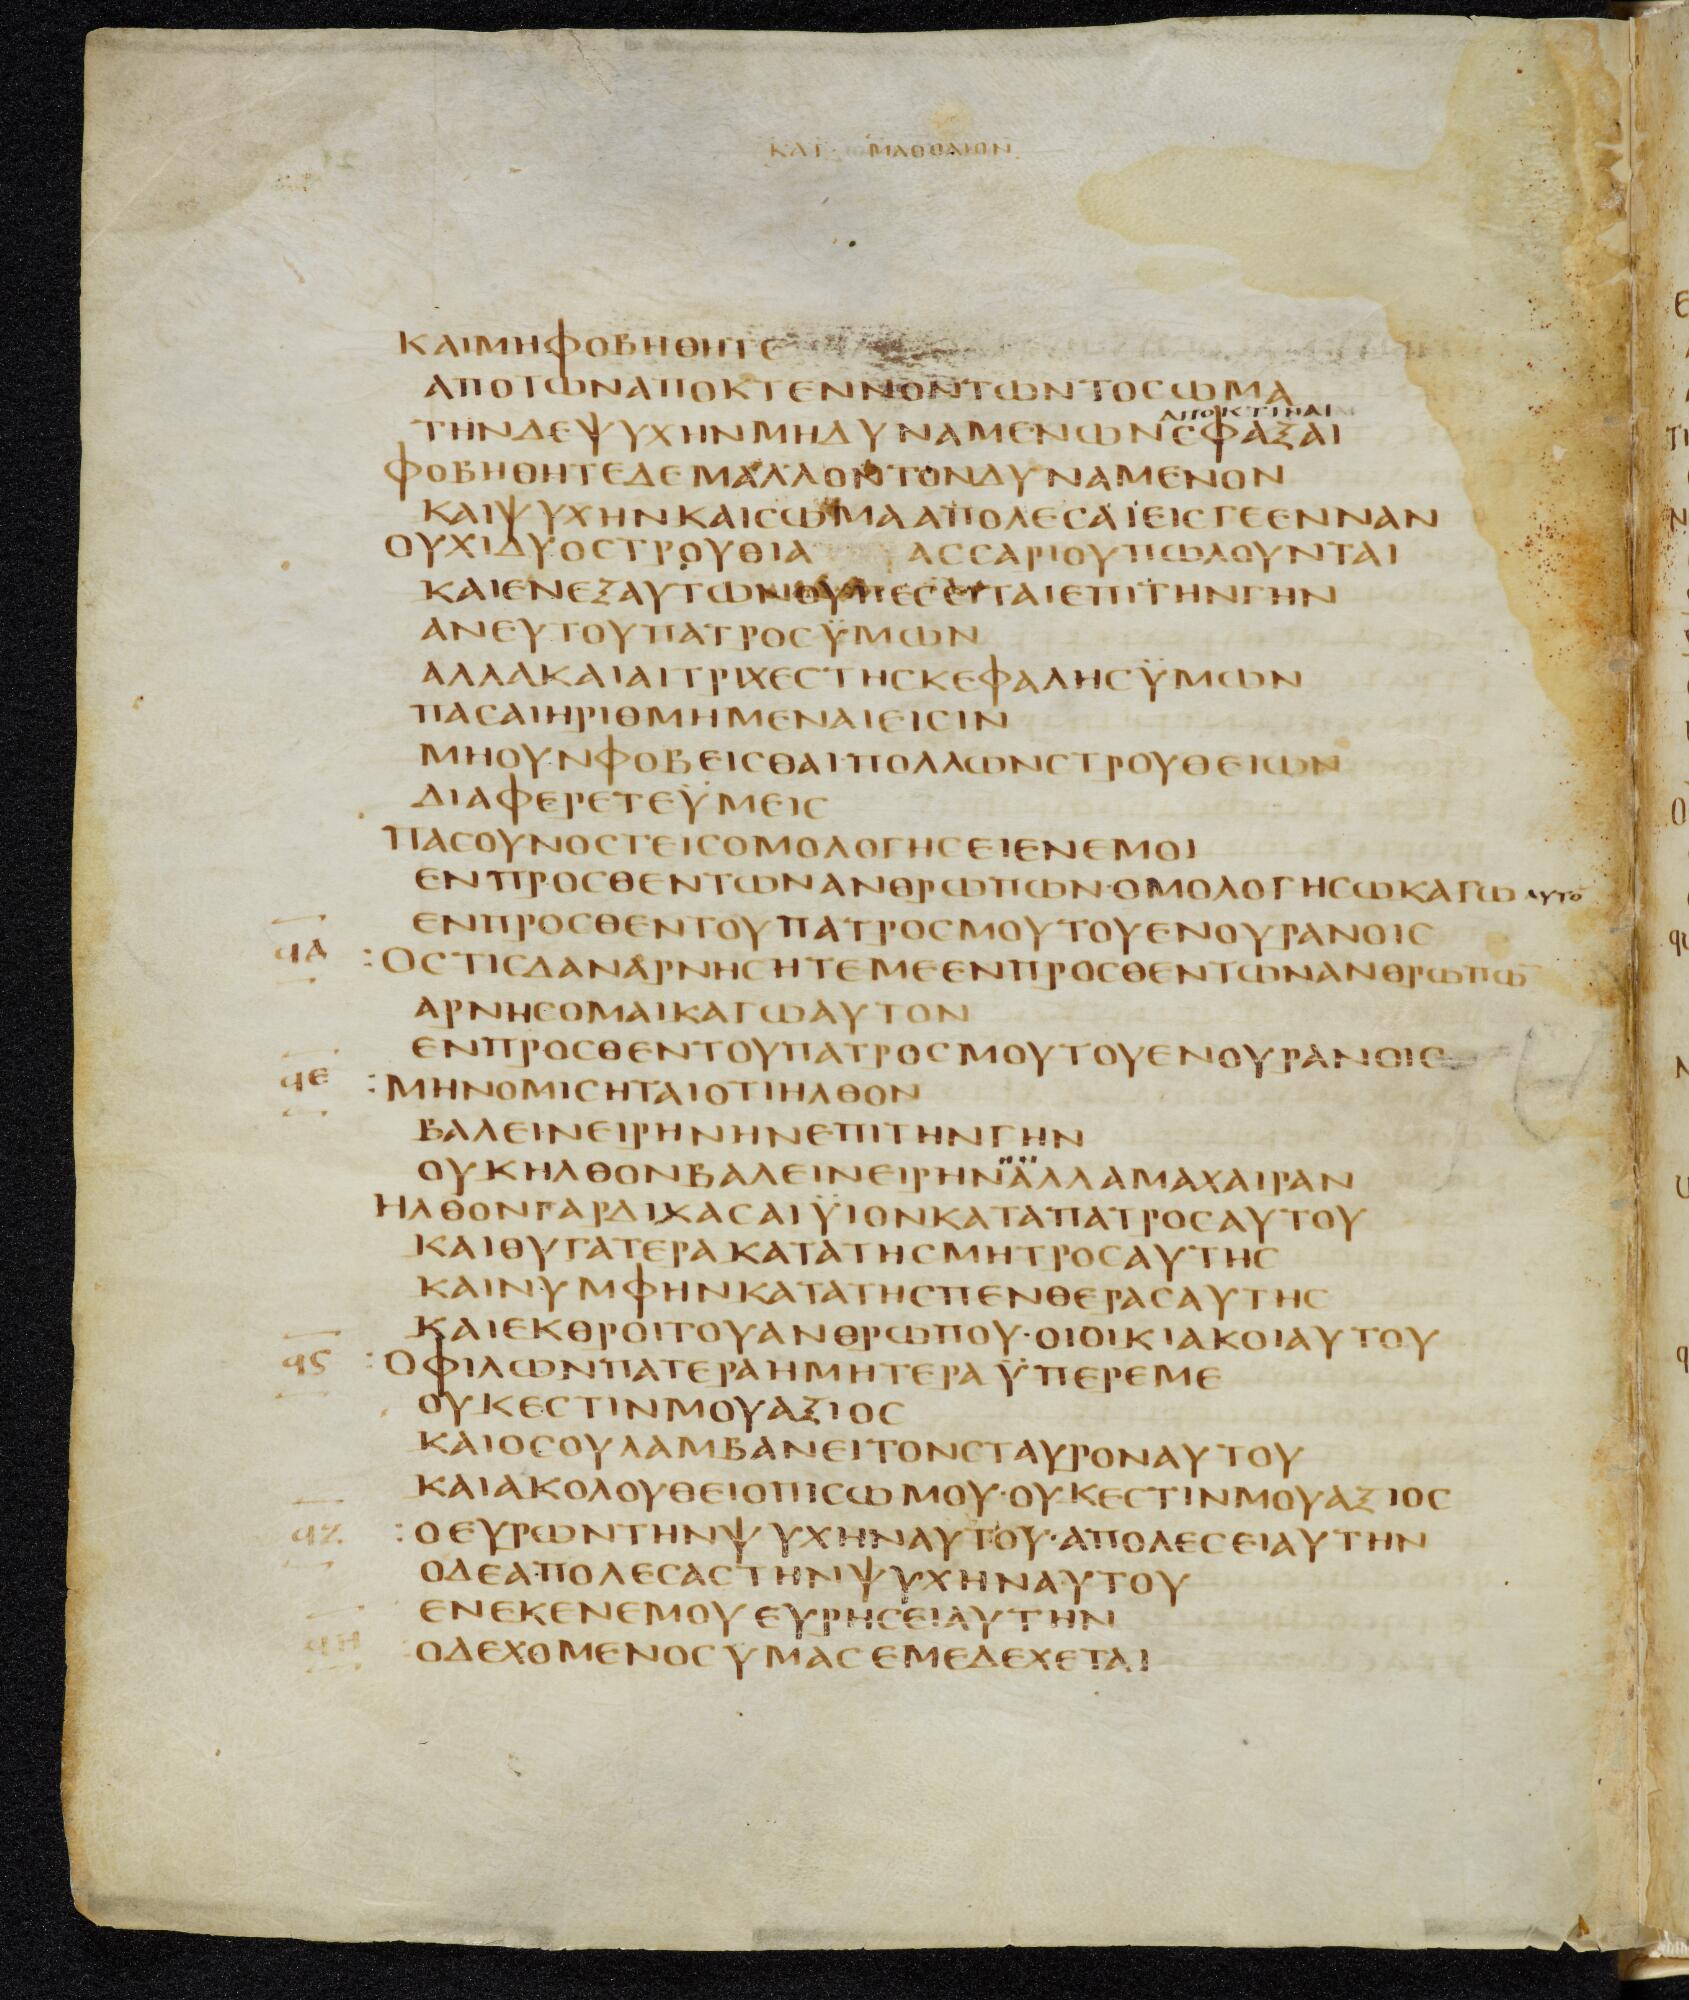 ΚΑΤ ΜΑΘΘΑΙΟΝ
ΚΑΙΜΗΦΟΒΗΘΗΤΕ
ΑΠΟΤΩΝΑΠΟΚΤΕΝΝΟΝΤΩΝΤΟСΩΜΑ
ΑΠΟΚΤΙΝΑΙ
ΤΗΝΔΕΨΥΧΗΝΜΗΔΥΝΑΜΕΝΩΝСΦΑΞΑΙ
ΦΟΒΗΘΗΤΕΔΕΜΑΛΛΟΝΤΟΝΔΥΝΑΜΕΝΟΝ
ΚΑΙΨΥΧΗΝΚΑΙСΩΜΑΑΠΟΛΕСΑΙΕΙСΓΕΕΝΝΑΝ
ΟΥΧΙΔΥΟСΤΡΟΥΘΙΑ ΑССΑΡΙΟΥΠΩΛΟΥΝΤΑΙ
ΚΑΙΕΝΕΞΑΥΤΩΝΟΥΠΕСΕΙΤΑΙΕΠΙΤΗΝΓΗΝ
ΑΝΕΥΤΟΥΠΑΤΡΟСΫΜΩΝ
ΑΛΛΑΚΑΙΑΙΤΡΙΧΕСΤΗСΚΕΦΑΛΗСΫΜΩΝ
ΠΑСΑΙΗΡΙΘΜΗΜΕΝΑΙΕΙСΙΝ
ΜΗΟΥΝΦΟΒΕΙСΘΑΙ·ΠΟΛΛΩΝСΤΡΟΥΘΕΙΩΝ
ΔΙΑΦΕΡΕΤΕΫΜΕΙС
ΠΑСΟΥΝΟСΤΕΙСΟΜΟΛΟΓΗСΕΙΕΝΕΜΟΙ
ΕΝΠΡΟСΘΕΝΤΩΝΑΝΘΡΩΠΩΝ·ΟΜΟΛΟΓΗСΩΚΑΓΩ ΑΥΤΟ
ΕΝΠΡΟСΘΕΝΤΟΥΠΑΤΡΟСΜΟΥΤΟΥΕΝΟΥΡΑΝΟΙС
ϤΔ :ΟСΤΙСΔΑΝΑΡΝΗСΗΤΕΜΕΕΝΠΡΟСΘΕΝΤΩΝΑΝΘΡΩΠΩ̅
ΑΡΝΗСΟΜΑΙΚΑΓΩΑΥΤΟΝ
ΕΝΠΡΟСΘΕΝΤΟΥΠΑΤΡΟСΜΟΥΤΟΥΕΝΟΥΡΑΝΟΙС
ϤΕ :ΜΗΝΟΜΙСΗΤΑΙΟΤΙΗΛΘΟΝ
ΒΑΛΕΙΝΕΙΡΗΝΗΝΕΠΙΤΗΝΓΗΝ
ΟΥΚΗΛΘΟΝΒΑΛΕΙΝΕΙΡΗΝΑΛΛΑΜΑΧΑΙΡΑΝ
ΗΛΘΟΝΓΑΡΔΙΧΑСΑΙΫΙΟΝΚΑΤΑΠΑΤΡΟСΑΥΤΟΥ
ΚΑΙΘΥΓΑΤΕΡΑΚΑΤΑΤΗСΜΗΤΡΟСΑΥΤΗС
ΚΑΙΝΥΜΦΗΝΚΑΤΑΤΗСΠΕΝΘΕΡΑСΑΥΤΗС
ΚΑΙΕΚΘΡΟΙΤΟΥΑΝΘΡΩΠΟΥ·ΟΙΟΙΚΙΑΚΟΙΑΥΤΟΥ
ϤϚ :ΟΦΙΛΩΝΠΑΤΕΡΑΗΜΗΤΕΡΑΫΠΕΡΕΜΕ
ΟΥΚΕСΤΙΝΜΟΥΑΞΙΟС
ΚΑΙΟСΟΥΛΑΜΒΑΝΕΙΤΟΝСΤΑΥΡΟΝΑΥΤΟΥ
ΚΑΙΑΚΟΛΟΥΘΕΙΟΠΙСΩΜΟΥ·ΟΥΚΕСΤΙΝΜΟΥΑΞΙΟС
ϤΖ :ΟΕΥΡΩΝΤΗΝΨΥΧΗΝΑΥΤΟΥ·ΑΠΟΛΕСΕΙΑΥΤΗΝ
ΟΔΕΑΠΟΛΕСΑСΤΗΝΨΥΧΗΝΑΥΤΟΥ
ΕΝΕΚΕΝΕΜΟΥΕΥΡΗСΕΙΑΥΤΗΝ
ϤΗ :ΟΔΕΧΟΜΕΝΟСΫΜΑСΕΜΕΔΕΧΕΤΑΙ